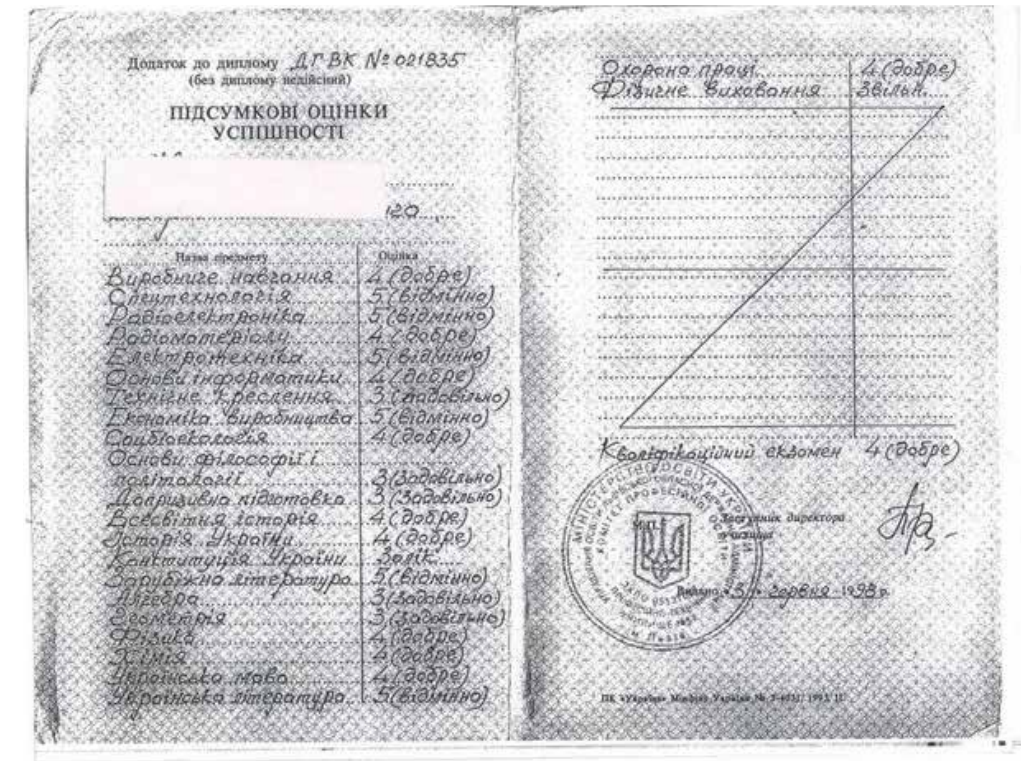 Додаток до диплому ДГВК № 021835
(без диплому недійсний)
ПІДСУМКОВІ ОЦІНКИ
УСПІШНОСТІ
ого
Назва предмету Оцінка
Виробниче навчання 4 (добре)
Спецтехнологія 5 (відмінно)
Радіоелектроніка 5 (відмінно)
Радіоматеріали 4 (добре)
Електротехніка 5 (відмінно)
Основи інформатики 4 (добре)
Технічне креслення 3 (задовільно)
Економіка виробництва 5 (відмінно)
Соцбіоекологія 4 (добре)
Основи філософії і
політології 3 (задовільно)
Допризивна підготовка 3 (задовільно)
Всесвітня історія 4 (добре)
Історія України 4 (добре)
Конституція України Залік
Зарубіжна література 5 (відмінно)
Алгебра 3 (задовільно)
Геометрія 3 (задовільно)
Фізика 4 (добре)
Хімія 4 (добре)
Українська мова 4 (добре)
Українська література 5 (відмінно)
Охорона праці 4 (добре)
Фізичне виховання Звільн.
Кваліфікаційний екзамен 4 (добре)
МІНІСТЕРСТВО ОСВІТИ УКРАЇНИ
М.П.
Заступник директора
училища
Видано «5» червня 1998 р.
м. Львів
ПК «Україна» Мінфіну України № 3-4031, 1993, II